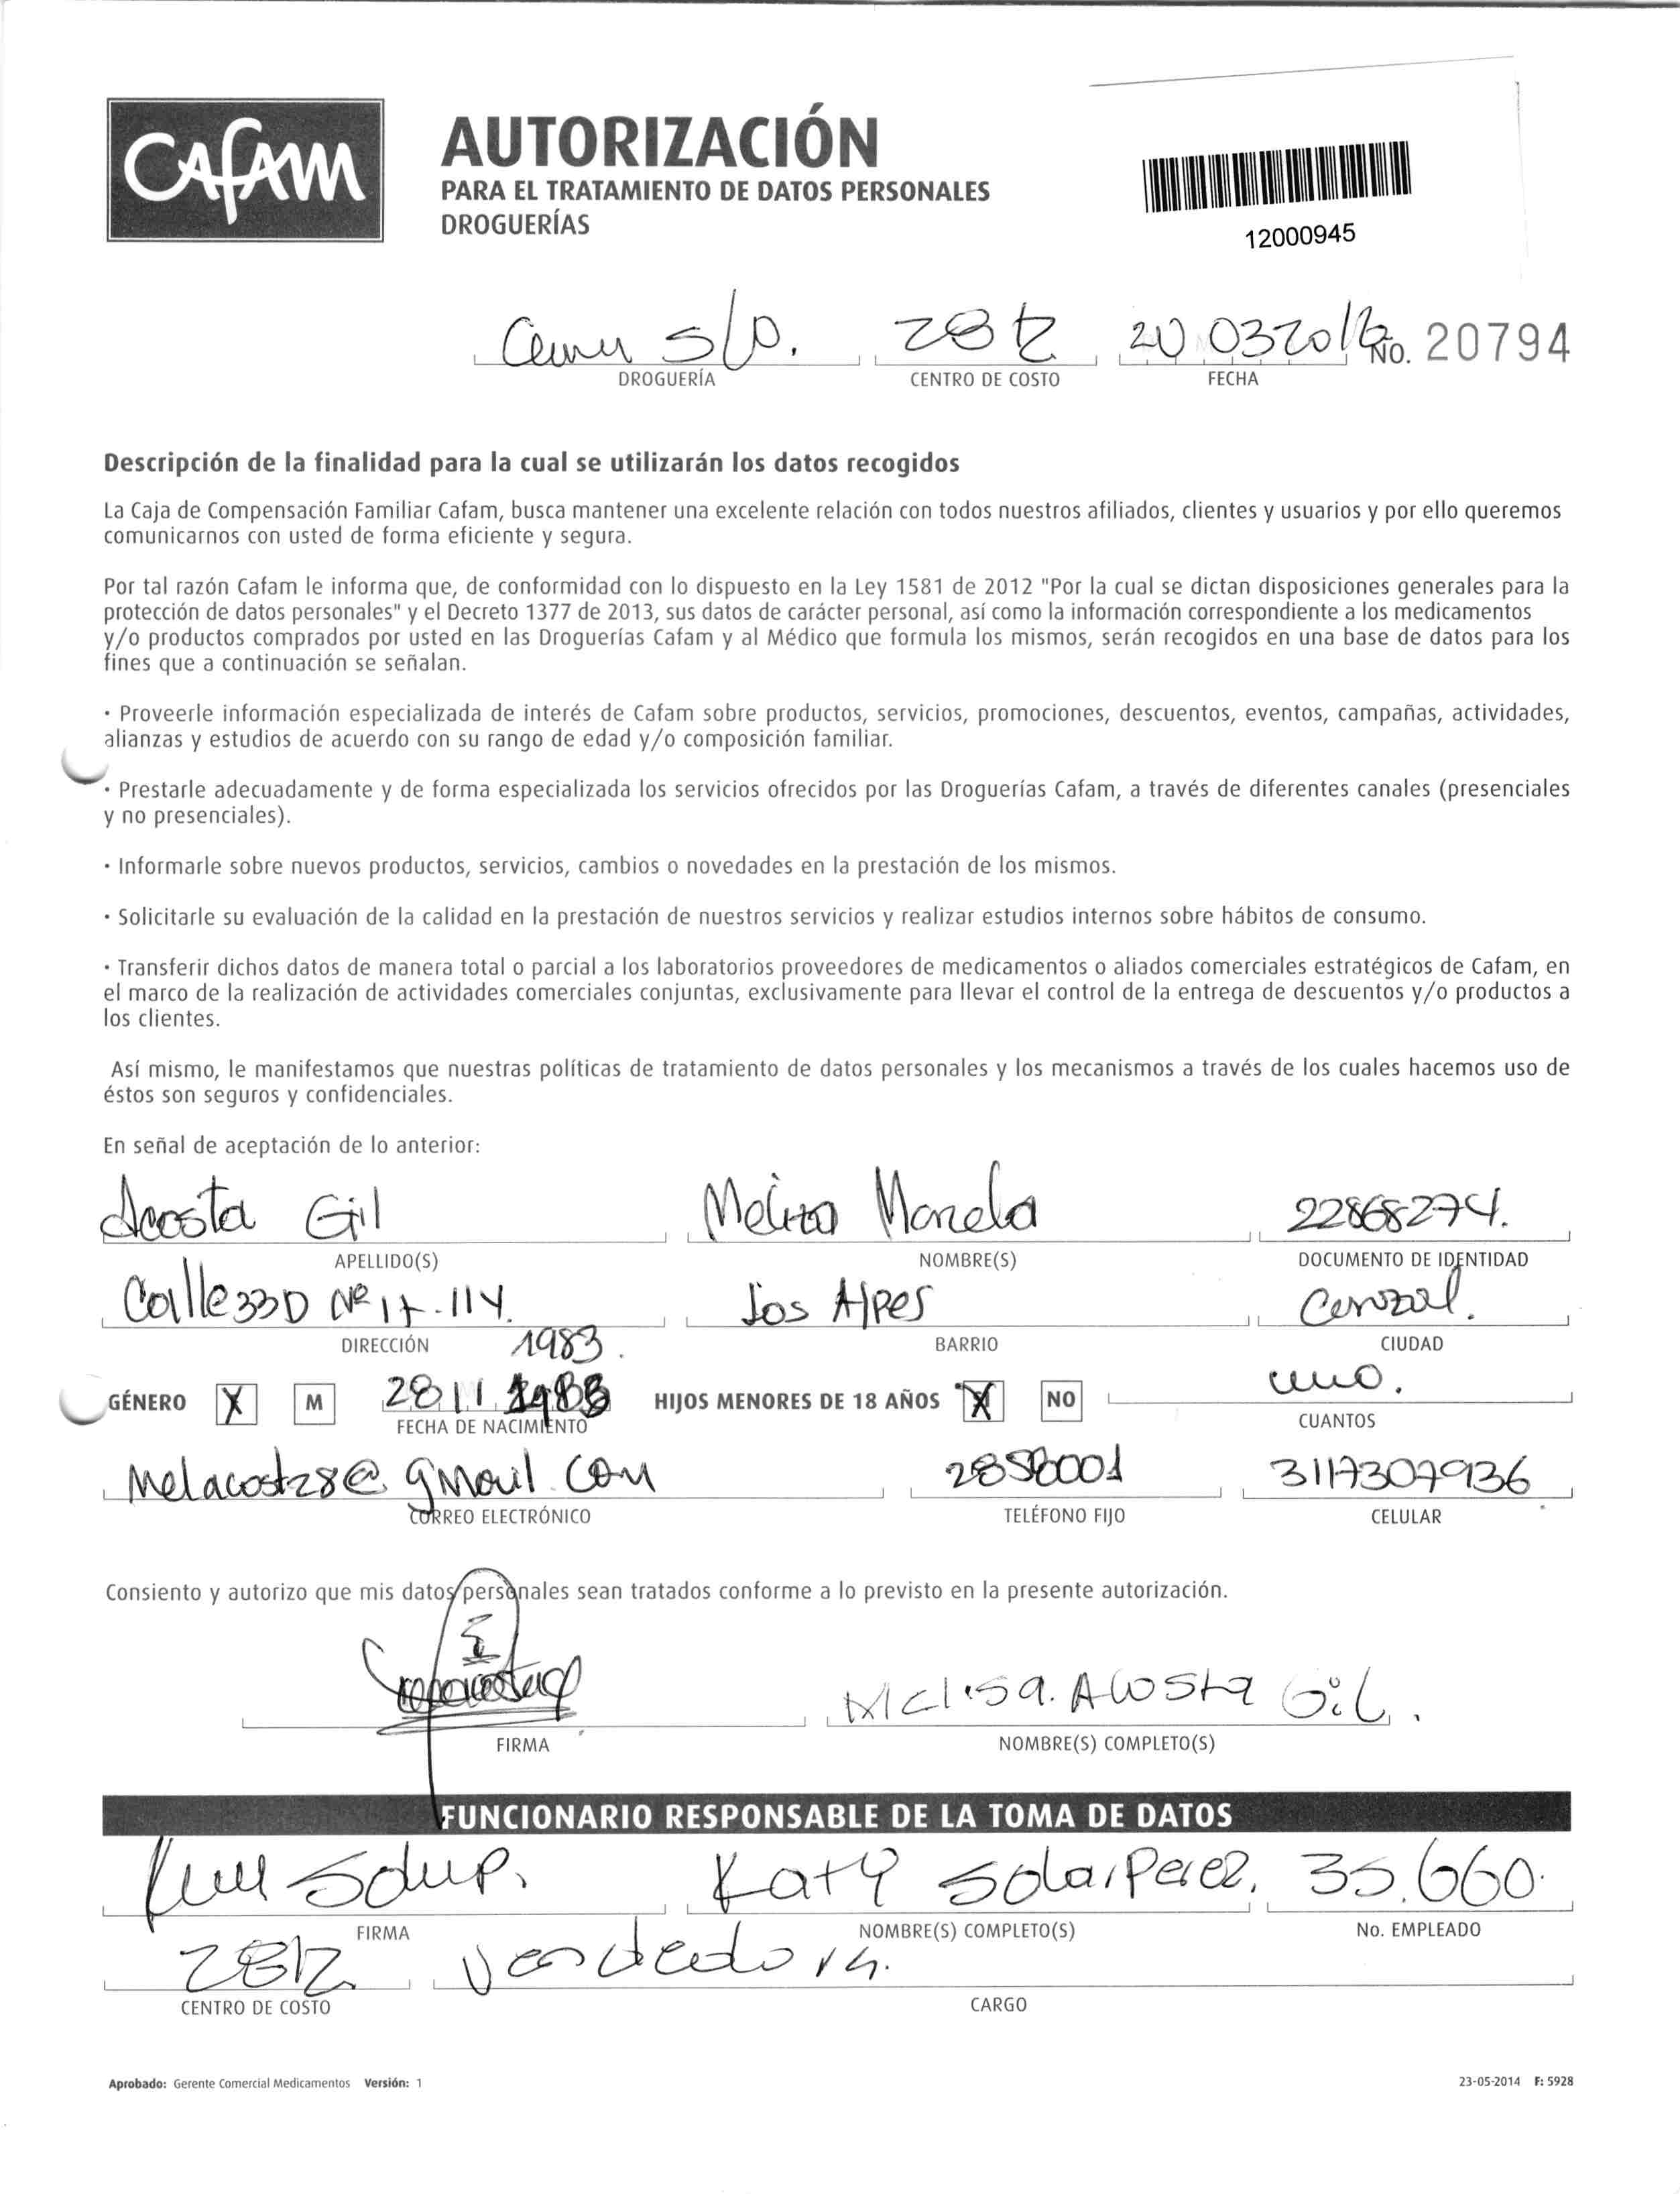 CAFAM
AUTORIZACIÓN
PARA EL TRATAMIENTO DE DATOS PERSONALES
DROGUERÍAS
12000945
No. 20794
DROGUERÍA CENTRO DE COSTO FECHA
Descripción de la finalidad para la cual se utilizarán los datos recogidos
La Caja de Compensación Familiar Cafam, busca mantener una excelente relación con todos nuestros afiliados, clientes y usuarios y por ello queremos
comunicarnos con usted de forma eficiente y segura.
Por tal razón Cafam le informa que, de conformidad con lo dispuesto en la Ley 1581 de 2012 "Por la cual se dictan disposiciones generales para la
protección de datos personales" y el Decreto 1377 de 2013, sus datos de carácter personal, así como la información correspondiente a los medicamentos
y/o productos comprados por usted en las Droguerías Cafam y al Médico que formula los mismos, serán recogidos en una base de datos para los
fines que a continuación se señalan.
· Proveerle información especializada de interés de Cafam sobre productos, servicios, promociones, descuentos, eventos, campañas, actividades,
alianzas y estudios de acuerdo con su rango de edad y/o composición familiar.
· Prestarle adecuadamente y de forma especializada los servicios ofrecidos por las Droguerías Cafam, a través de diferentes canales (presenciales
y no presenciales).
· Informarle sobre nuevos productos, servicios, cambios o novedades en la prestación de los mismos.
· Solicitarle su evaluación de la calidad en la prestación de nuestros servicios y realizar estudios internos sobre hábitos de consumo.
· Transferir dichos datos de manera total o parcial a los laboratorios proveedores de medicamentos o aliados comerciales estratégicos de Cafam, en
el marco de la realización de actividades comerciales conjuntas, exclusivamente para llevar el control de la entrega de descuentos y/o productos a
los clientes.
Así mismo, le manifestamos que nuestras políticas de tratamiento de datos personales y los mecanismos a través de los cuales hacemos uso de
éstos son seguros y confidenciales.
En señal de aceptación de lo anterior:
Acosta Gil Melissa Marcela 22868274.
APELLIDO(S) NOMBRE(S) DOCUMENTO DE IDENTIDAD
Calle 33D Nº 17-114. Los Alpes
DIRECCIÓN BARRIO CIUDAD
1983.
GÉNERO X M 28 11 HIJOS MENORES DE 18 AÑOS X NO uno.
FECHA DE NACIMIENTO CUANTOS
Melacost28@gmail.com 3117307936
CORREO ELECTRÓNICO TELÉFONO FIJO CELULAR
Consiento y autorizo que mis datos personales sean tratados conforme a lo previsto en la presente autorización.
Melisa. Acosta Gil.
FIRMA NOMBRE(S) COMPLETO(S)
FUNCIONARIO RESPONSABLE DE LA TOMA DE DATOS
Katy Solar Perez. 35.660.
FIRMA NOMBRE(S) COMPLETO(S) No. EMPLEADO
Vendedora.
CENTRO DE COSTO CARGO
Aprobado: Gerente Comercial Medicamentos Versión: 1
23-05-2014 F: 5928